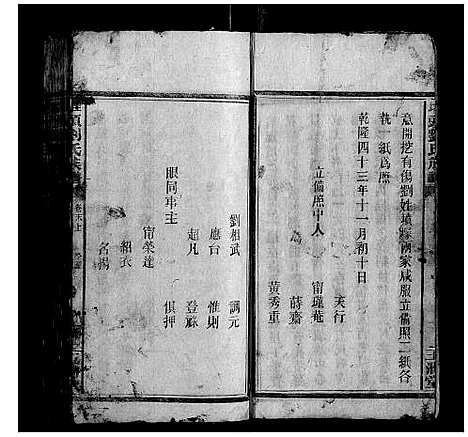 意開挖有傷劉姓墳塚兩家咸服立備照二紙各
執一紙為照
乾隆四十三年十一月初十日
立備照中人
天行
甯瓏菴
蒔齋
黄秀重
劉相武
調元
應台
惟則
超凡
登祿
眼同事主
俱押
甯榮達
紹衣
名揚
劉氏族
卷末上